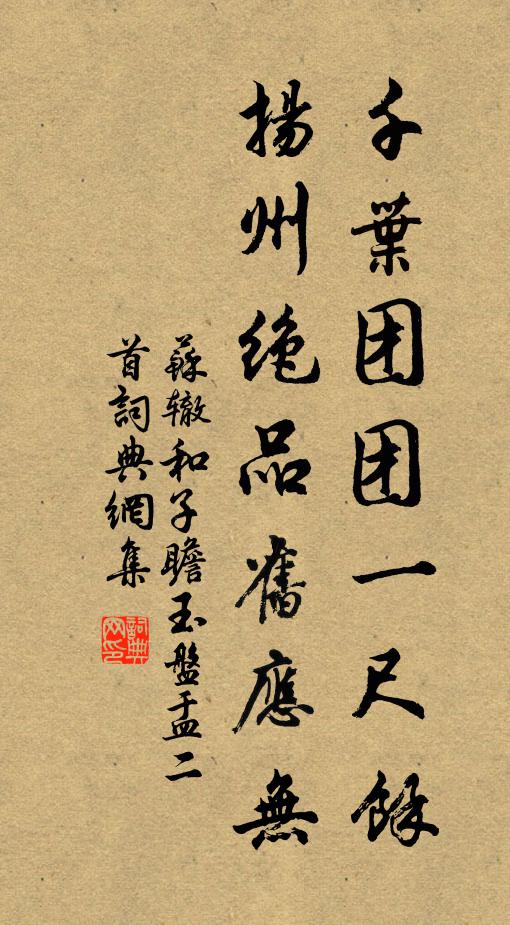 千葉团团一尺餘
揚州绝品舊應無
蘇辙和子瞻玉盤盂二
首詞典網集
詞典
网印